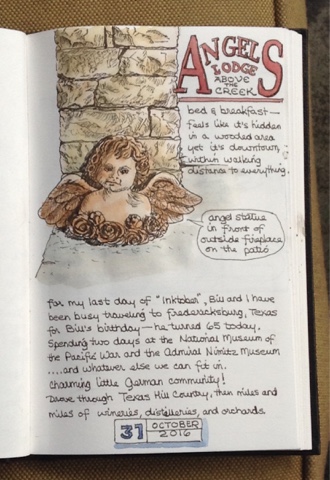 ANGELS
LODGE
ABOVE
THE
CREEK
bed & breakfast—
feels like it's hidden
in a wooded area
yet it's downtown,
within walking
distance to everything.
angel statue
in front of
outside fireplace
on the patio
For my last day of "Inktober", Bill and I have
been busy traveling to Fredericksburg, Texas
for Bill's birthday—he turned 65 today.
Spending two days at the National Museum of
the Pacific War and the Admiral Nimitz Museum
....and whatever else we can fit in.
Charming little German community!
Drove through Texas Hill Country, then miles and
miles of wineries, distilleries, and orchards.
31 OCTOBER
2016